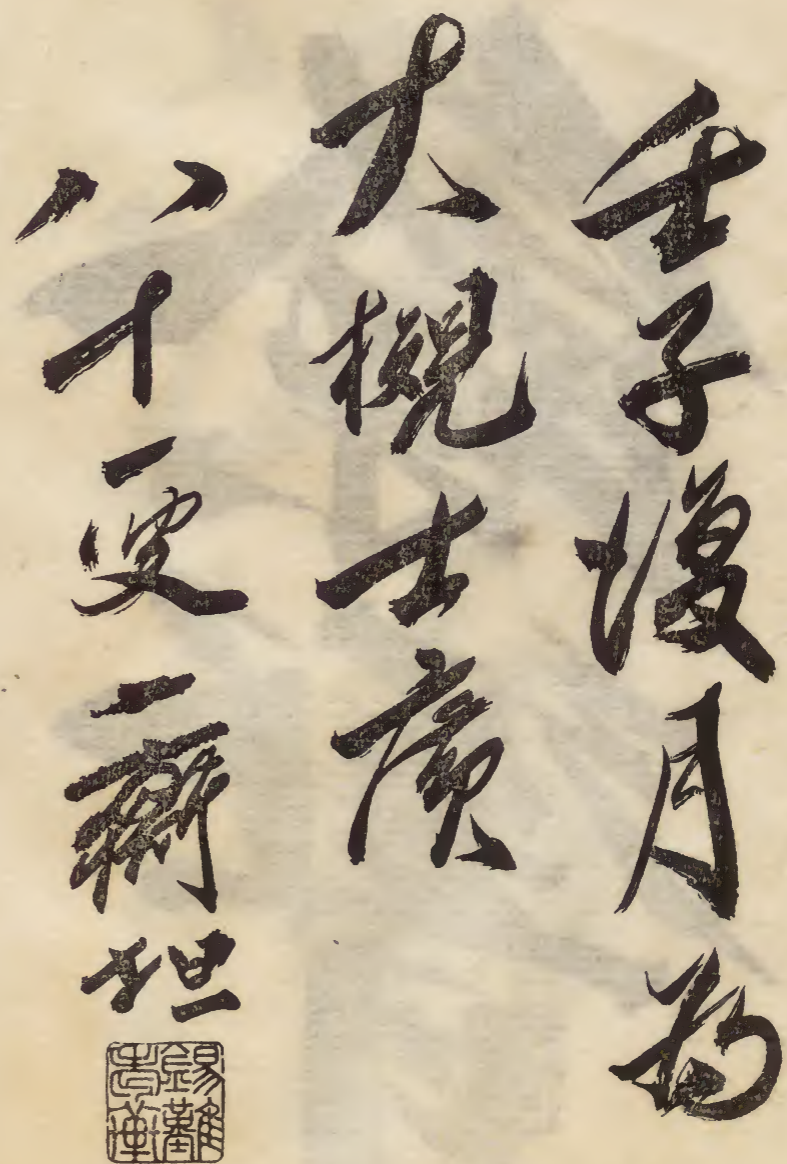 壬子復月為
大槻士廣
八十一叟一齋坦